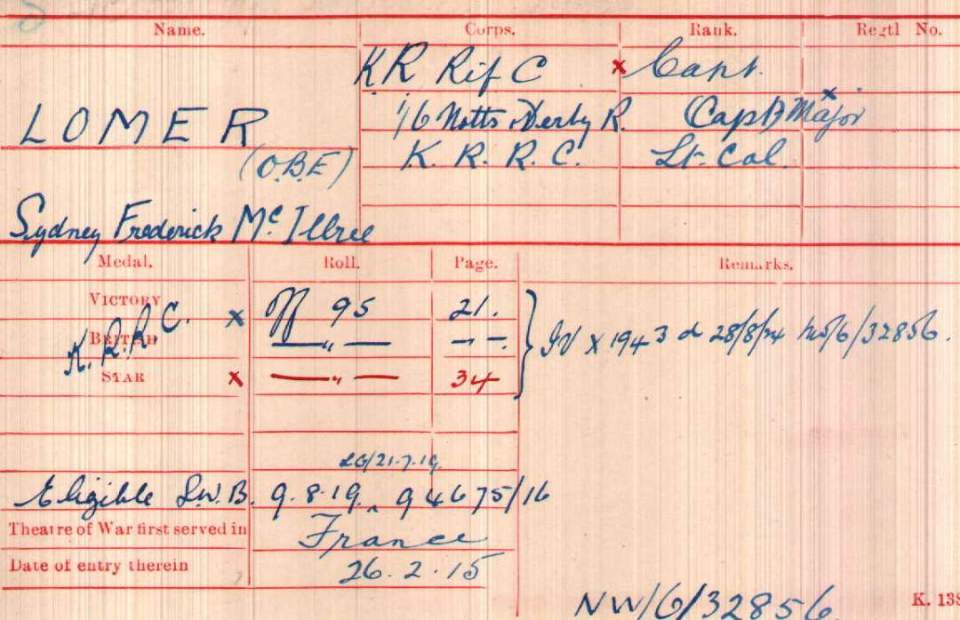 Name. Corps. Rank. Regtl No.
K R Rif C x Capt.
LOMER 1/6 Notts & Derby R. Capt x Major
(O.B.E) K. R. R. C. Lt. Col
Sydney Frederick McIllree
Medal. Roll. Page. Remarks.
VICTORY x Off 95 21.
K.R.R.C.
BRITISH — " — — " —
IV x 1943 d 28/8/24 NW/6/32856.
STAR x — " — 34
LG/21.7.19
Eligible S.W.B. 9.8.19 94675/16
Theatre of War first served in France
Date of entry therein 26.2.15
NW/6/32856. K. 138